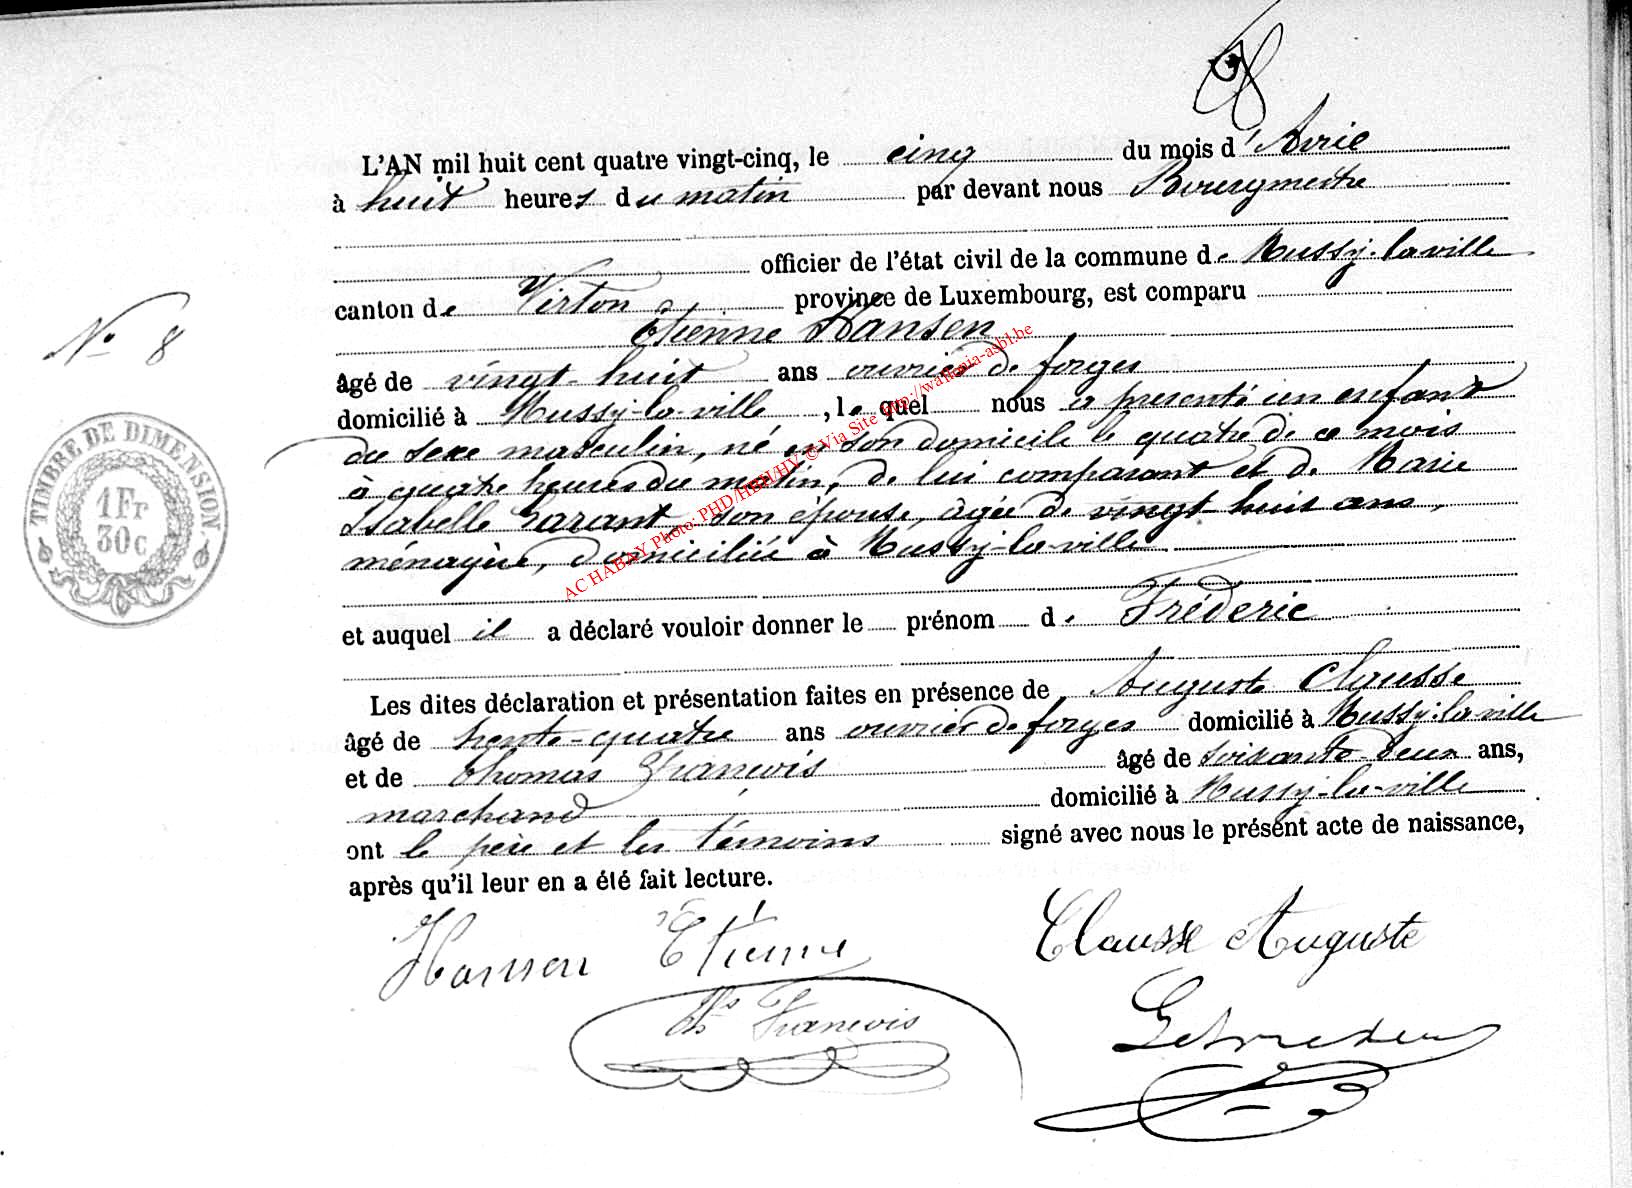 L'AN mil huit cent quatre vingt-cinq, le cinq du mois d'Avril
à huit heures du matin par devant nous Bourgmestre
officier de l'état civil de la commune de Mussy-la-ville
canton de Virton province de Luxembourg, est comparu
Etienne Hansen
N° 8
âgé de vingt-huit ans ouvrier de forges
domicilié à Mussy-la-ville, lequel nous a présenté un enfant
du sexe masculin, né en son domicile le quatre de ce mois
à quatre heures du matin, de lui comparant et de Marie
Isabelle Garant, son épouse, âgée de vingt-huit ans,
ménagère, domiciliée à Mussy-la-ville
et auquel il a déclaré vouloir donner le prénom de Fréderic
Les dites déclaration et présentation faites en présence de Auguste Clausse
âgé de trente-quatre ans ouvrier de forges domicilié à Mussy-la-ville
et de Thomas François âgé de soixante-deux ans,
marchand domicilié à Mussy-la-ville
ont le père et les témoins signé avec nous le présent acte de naissance,
après qu'il leur en a été fait lecture.
Hansen Etienne
Clausse Auguste
Ths François
TIMBRE DE DIMENSION
1Fr
30c
AC HABAY Photo: PHD/HBH/HV © Via Site http://wallonia-asbl.be